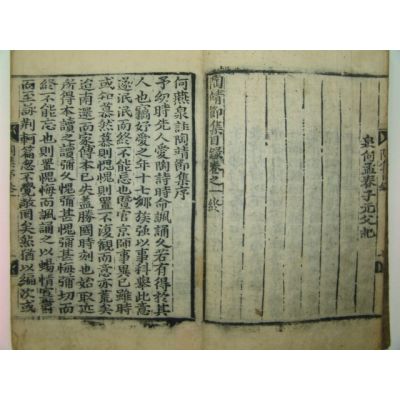 泉何孟春子元父記
陶靖節集目錄卷之一終
何燕泉註陶靖節集序
予幼時先人愛陶詩時命諷誦久若有得於其
人也竊好愛之年十七鄉族強以事科舉此意
遂泯泯而終不能忘也暨官京師事異已雖時
或知慕然慕則愧愧則置不復觀而意亦荒矣
迨南還而家傳本已失盖勝國時刻也始取近
所得本讀之讀彌久愧彌甚愧彌甚悔彌切而
終不能忘也則置愧悔而諷誦之以暢情
而至詠荊軻篇忽不覺矣然猶以編次或